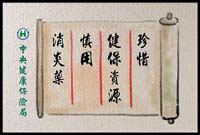 珍惜
健保資源
慎用
消炎藥
中央健康保險局